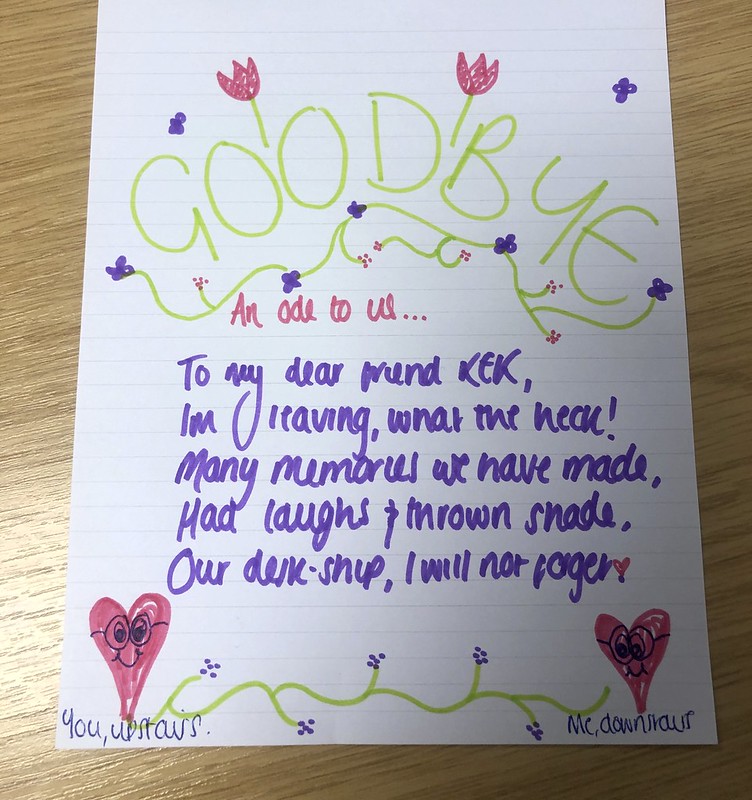 GOODBYE
An ode to us...
To my dear friend KEK,
Im leaving, what the heck!
Many memories we have made,
Had laughs & thrown shade,
Our desk-ship, I will not forget
You, upstairs.
Me, downstairs